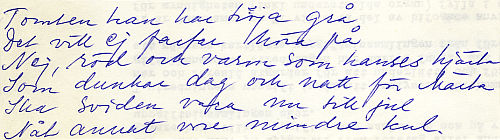 Tomten han har tröja grå
Det vill ej farfar höra på
Nej, röd och varm som hans hjärta
Som dunkar dag och natt för
Ska sviden vara nu till jul
Nåt annat vore mindre kul.